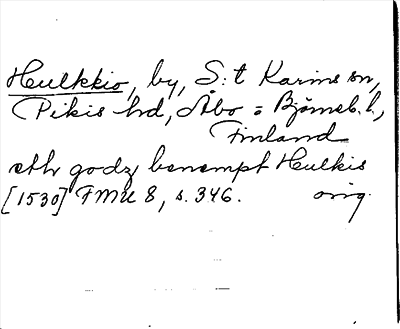 Hulkkio, by, S:t Karins sn,
Pikis hd, Åbo = Björneb. l.,
Finland
eth godz benempt Hulkis
[1530] FMU 8, s. 346. orig.